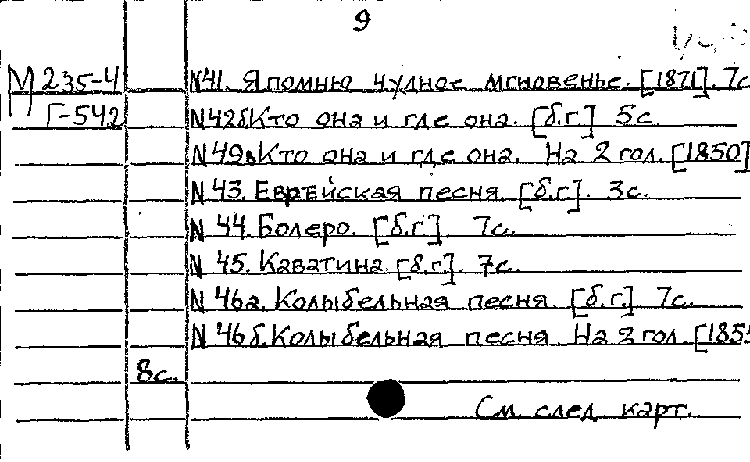 9
М 235-4 N41. Я помню чудное мгновенье. [1871]. 7с
Г-542 N42б Кто она и где она. [б.г.] 5с.
N49в Кто она и где она. На 2 гол. [1850]
N 43. Еврейская песня. [б.г]. 3с.
N 44. Болеро. [б.г]. 7с.
N 45. Каватина. [б.г]. 7с.
N 46а. Колыбельная песня. [б.г.] 7с.
N 46б. Колыбельная песня. На 2 гол. [1855
8с.
См. след. карт.